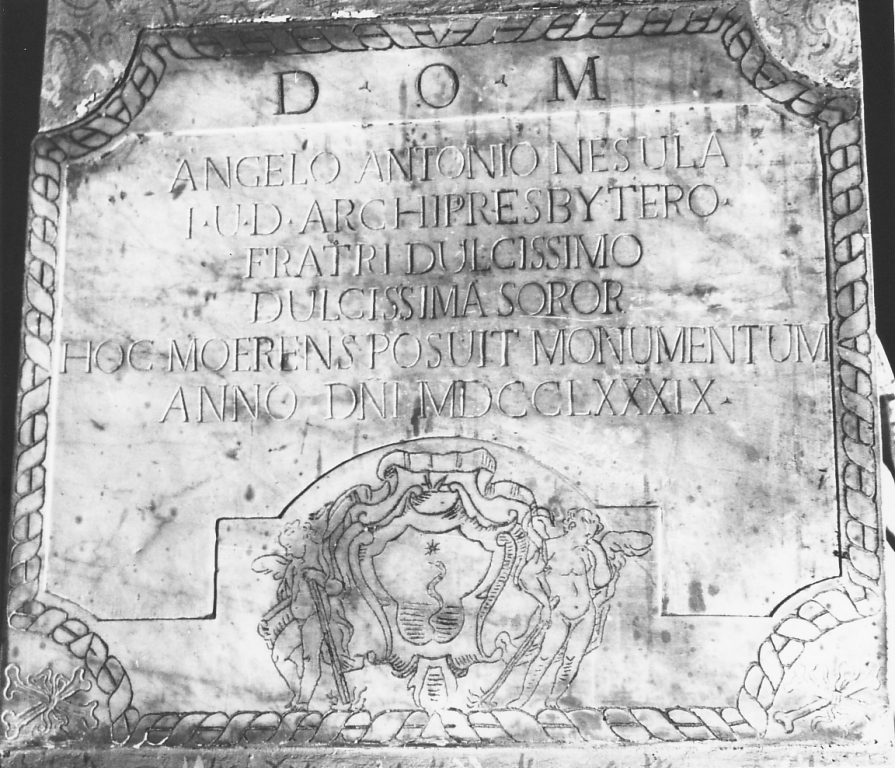 D·O·M
ANGELO ANTONIO NESULA
I·U·D·ARCHIPRESBYTERO·
FRATRI DULCISSIMO
DULCISSIMA SOROR
HOC MOERENS POSUIT MONUMENTUM
ANNO DNI MDCCLXXXIX·